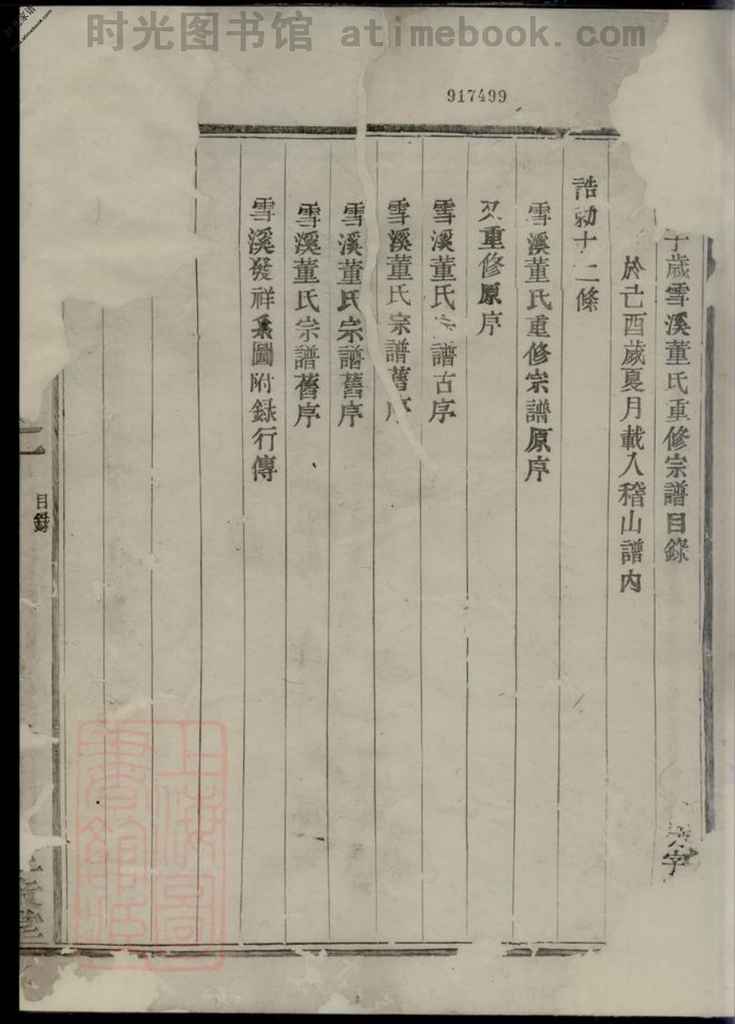 时光图书馆 atimebook.com
917499
歲雪溪董氏重修宗譜目錄
於己酉歲夏月載入稽山譜内
誥勅十二條
雪溪董氏重修宗譜原序
又重修原序
雪溪董氏宗譜古序
雪溪董氏宗譜舊序
雪溪董氏宗譜舊序
雪溪董氏宗譜舊序
雪溪發祥系圖附錄行傳
目錄
上海圖書館藏